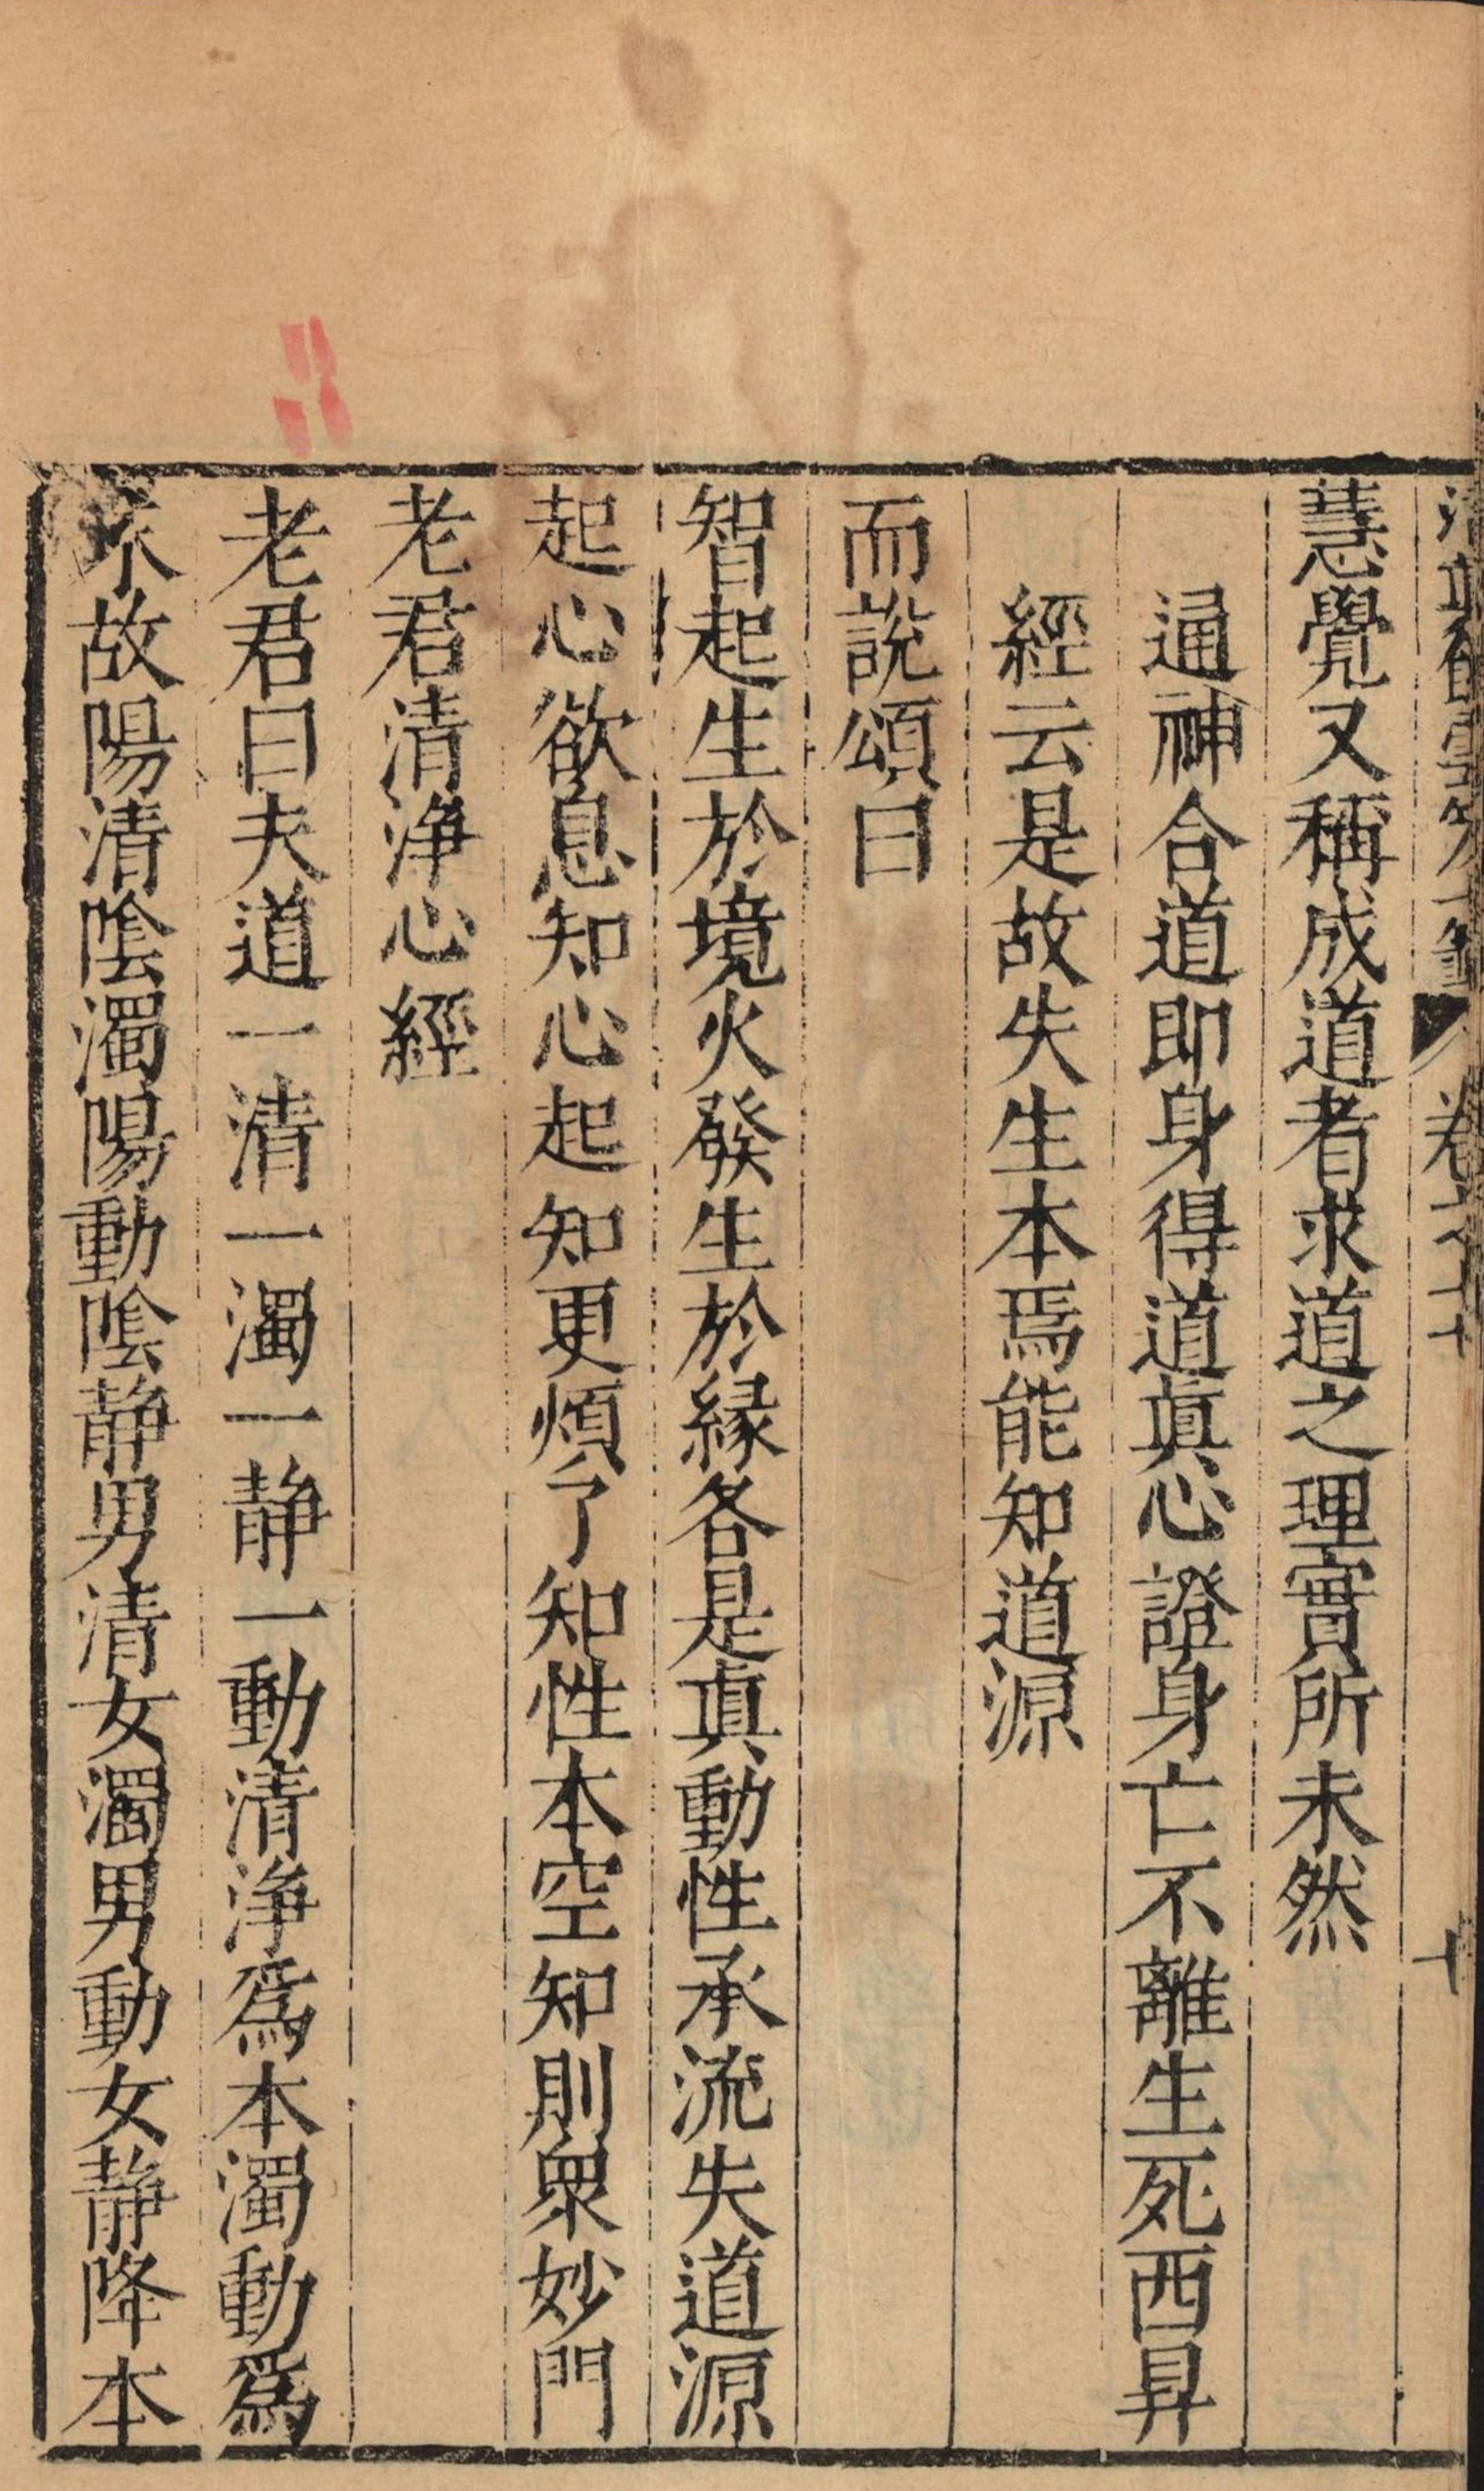 慧覺又稱成道者求道之理實所未然
通神合道即身得道眞心證身亡不離生死西昇
經云是故失生本焉能知道源
而說頌曰
智起生於境火發生於緣各是真動性承流失道源
起心欲息知心起知更煩了知性本空知則衆妙門
老君清淨心經
老君曰夫道一清一濁一静一動清淨爲本濁動爲
末故陽清陰濁陽動陰静男清女濁男動女静降本